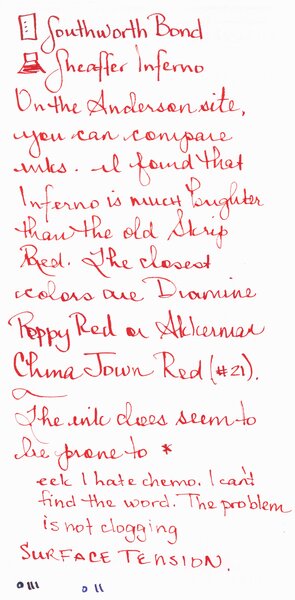 Southworth Bond
Sheaffer Inferno
On the Anderson site,
you can compare
inks. I found that
Inferno is much brighter
than the old Skrip
Red. The closest
colors are Diamine
Poppy Red or Akkerman
China Town Red (#21).
The ink does seem to
be prone to *
eek I hate chemo. I can't
find the word. The problem
is not clogging
SURFACE TENSION.